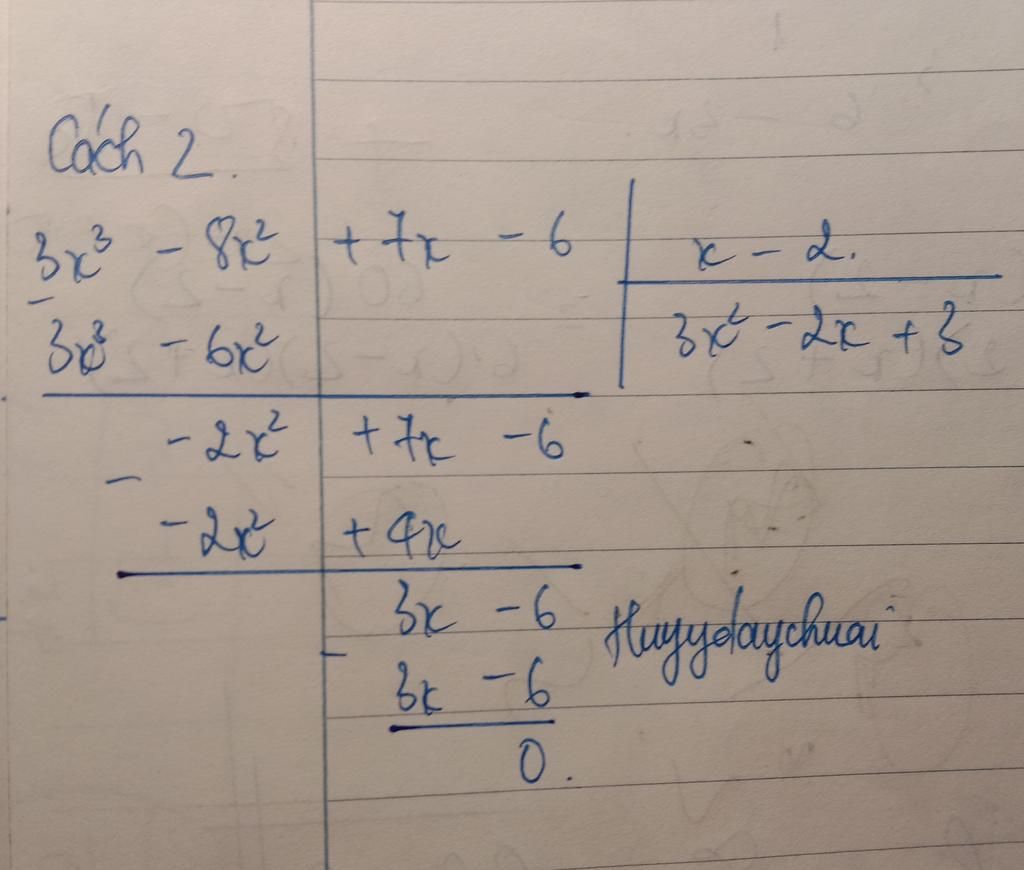 Cách 2.
3x³ - 8x² + 7x - 6 | x - 2.
-
3x³ - 6x² | 3x² - 2x + 3
-2x² + 7x - 6
-
-2x² + 4x
3x - 6
Huyydaychuai
-
3x - 6
0.